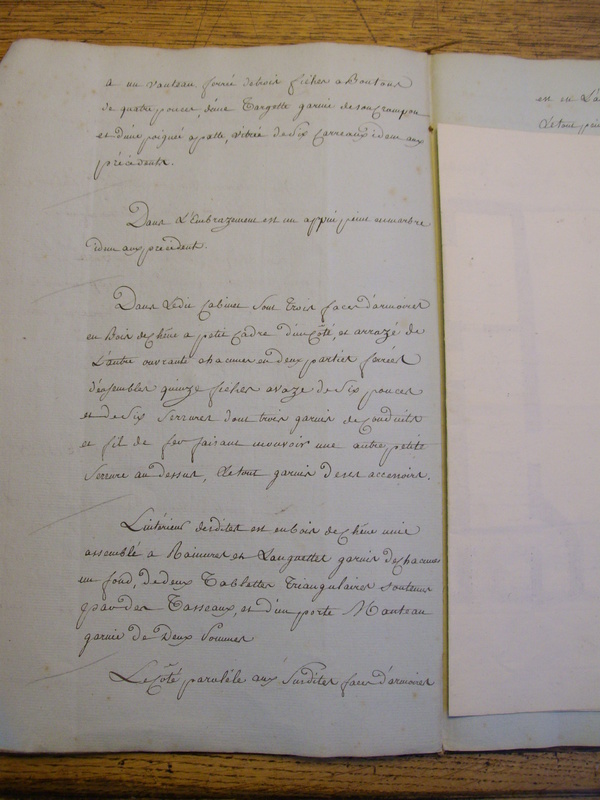 a un vanteau ferrée de trois fiches a Boutons
de quatre pouces, d'une Targette garnie de son Crampon
et d'une poignée a patte, vitrée de Six Carreaux idem aux
précédents.
Dans L'Embrazement est un appui peint en marbre
idem aux precedent.
Dans Ledit Cabinet sont trois faces d'armoires
en Bois de Chêne a petit Cadre d'un Côté, et arrazé de
L'autre ouvrante chacunes en deux parties ferrées
d'ensembles quinze fiches a vaze de Six pouces
et de Six Serrures dont trois garnis de Conduits
et fil de fer faisant mouvoir une autre petite
Serrure au dessus, Le tout garnis de ses accessoirs.
L'intérieur desdites est en Bois de Chêne unie
assemblé a Rainures et Languettes garnis de Chacunes
un fond, de deux Tablettes Triangulaires soutenus
par des Tasseaux, et d'un porte Manteau
garnie de Deux Pommes
Le Côté paralèle aux Susdites faces d'armoires
est un
Le tout